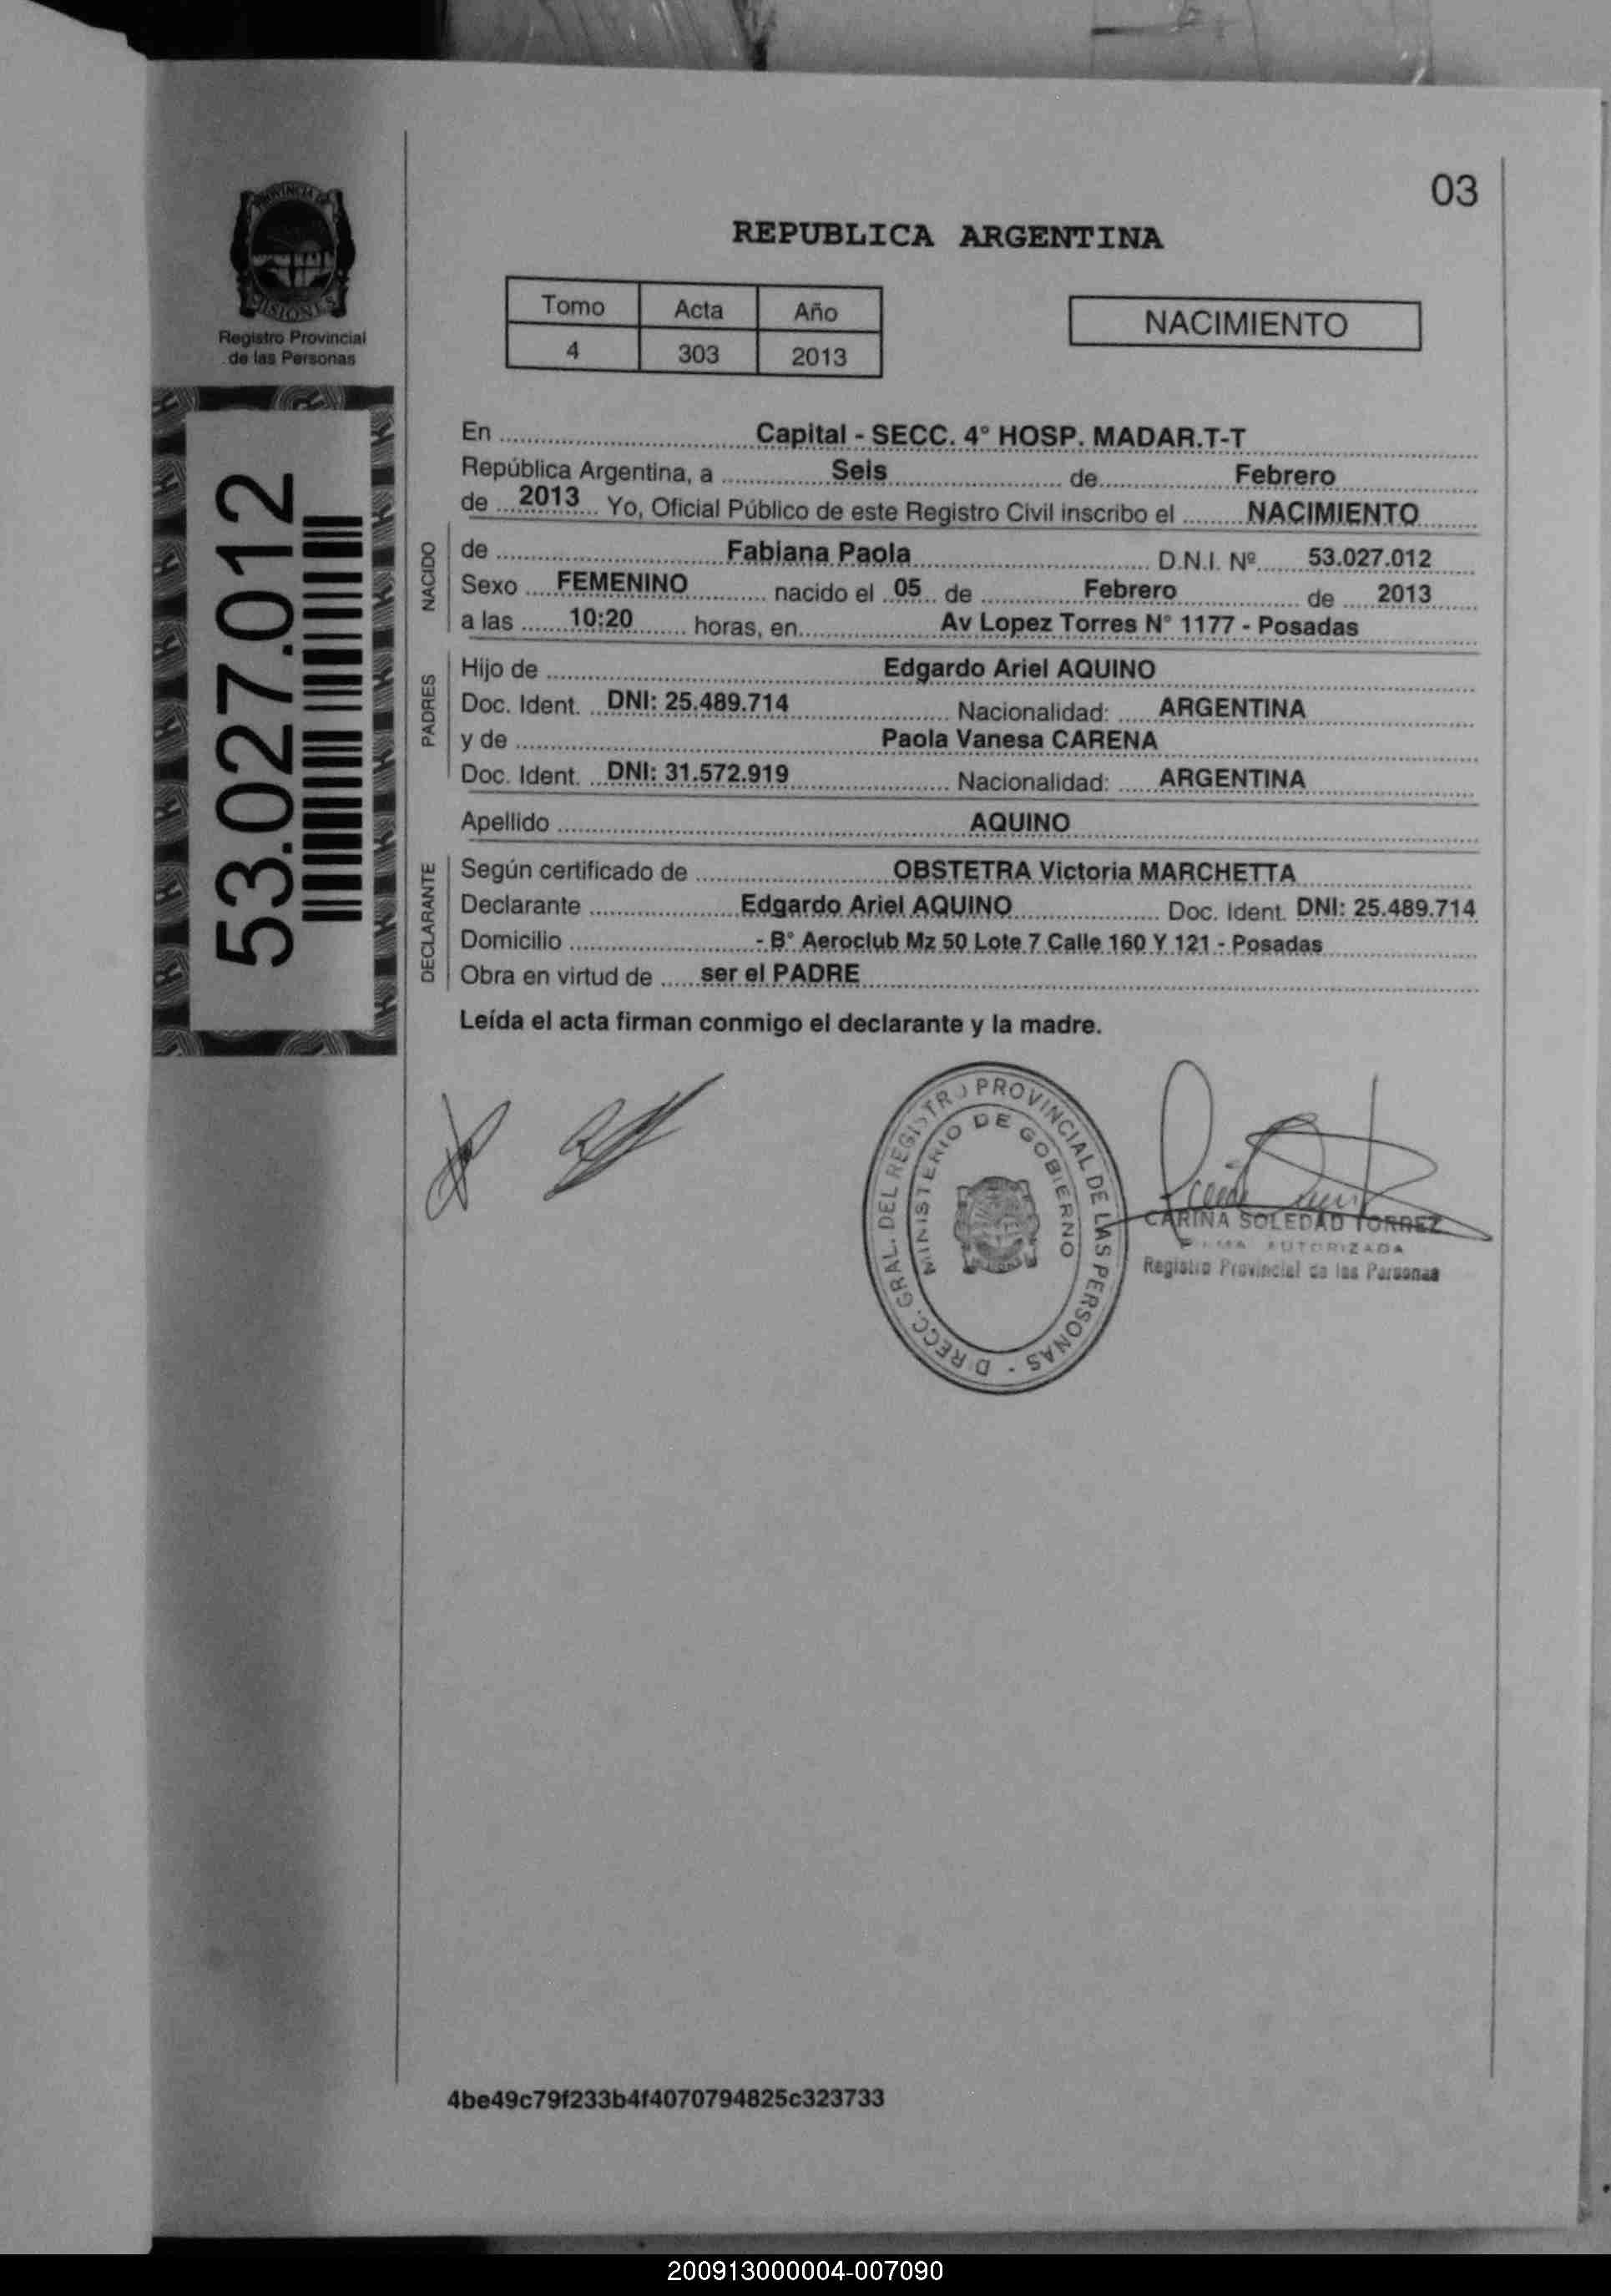 03
REPUBLICA ARGENTINA
PROVINCIA DE
MISIONES
Registro Provincial
de las Personas
Tomo Acta Año
4 303 2013
NACIMIENTO
53.027.012
En Capital - SECC. 4° HOSP. MADAR.T-T
República Argentina, a Seis de Febrero
de 2013 Yo, Oficial Público de este Registro Civil inscribo el NACIMIENTO
NACIDO
de Fabiana Paola D.N.I. Nº 53.027.012
Sexo FEMENINO nacido el 05 de Febrero de 2013
a las 10:20 horas, en Av Lopez Torres N° 1177 - Posadas
PADRES
Hijo de Edgardo Ariel AQUINO
Doc. Ident. DNI: 25.489.714 Nacionalidad: ARGENTINA
y de Paola Vanesa CARENA
Doc. Ident. DNI: 31.572.919 Nacionalidad: ARGENTINA
Apellido AQUINO
DECLARANTE
Según certificado de OBSTETRA Victoria MARCHETTA
Declarante Edgardo Ariel AQUINO Doc. Ident. DNI: 25.489.714
Domicilio - B° Aeroclub Mz 50 Lote 7 Calle 160 Y 121 - Posadas
Obra en virtud de ser el PADRE
Leída el acta firman conmigo el declarante y la madre.
DIRECC. GRAL. DEL REGISTRO PROVINCIAL DE LAS PERSONAS -
MINISTERIO DE GOBIERNO
CARINA SOLEDAD TORREZ
FIRMA AUTORIZADA
Registro Provincial de las Personas
4be49c79f233b4f4070794825c323733
200913000004-007090